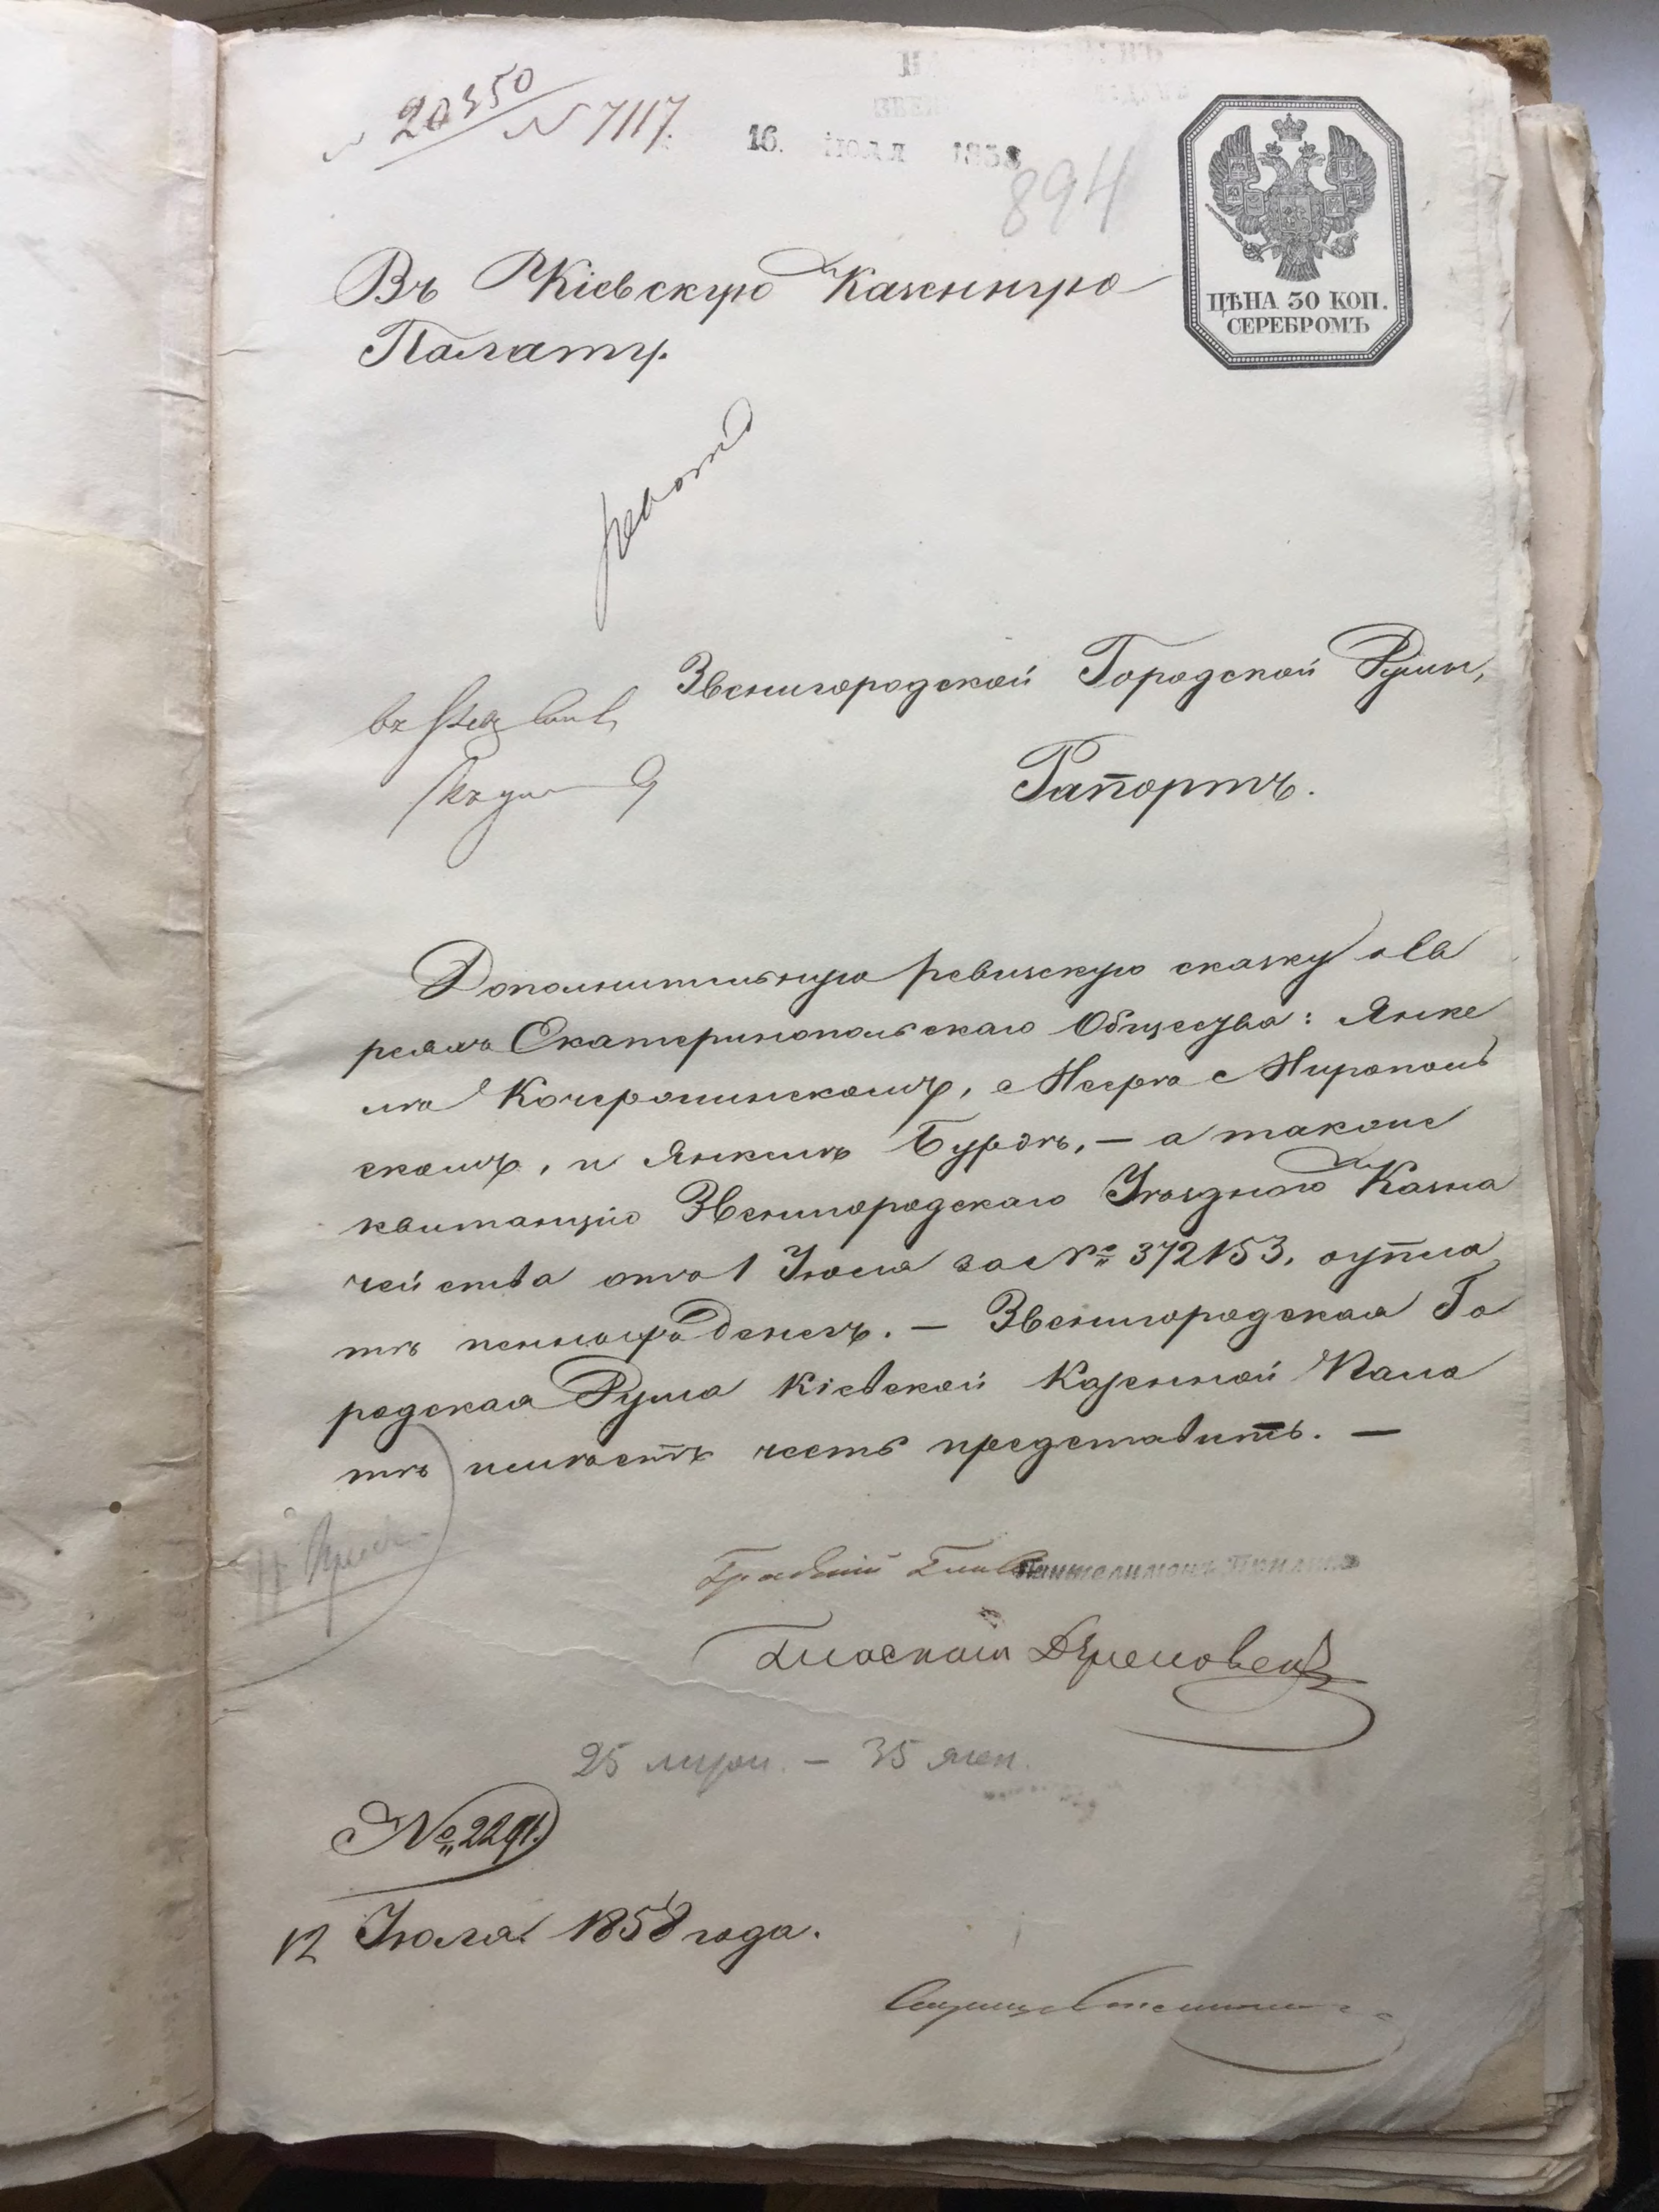 20350
№ 7117.
16. Іюля 1858
894
ЦѢНА 30 КОП.
СЕРЕБРОМЪ
Въ Кіевскую Казенную
Палату.
Звенигородской Городской Думы,
Рапортъ.
Дополнительную ревизскую сказку о Ев
реяхъ Екатеринопольскаго Общества: Янке
лѣ Кочеролинскомъ, Меерѣ Мирополь
скомъ, и Янкелѣ Бурдѣ, — а также
квитанцію Звенигородскаго Уѣзднаго Казна
чейства отъ 1 Іюля за № 372153, о упла
тѣ денегъ. — Звенигородская Го
родская Дума Кіевской Казенной Пала
тѣ имѣетъ честь представить. —
Градскій Глава Пантелимонъ
Гласный
25 мужи. — 35 жен.
№ 2291.
12 Іюля 1858 года.